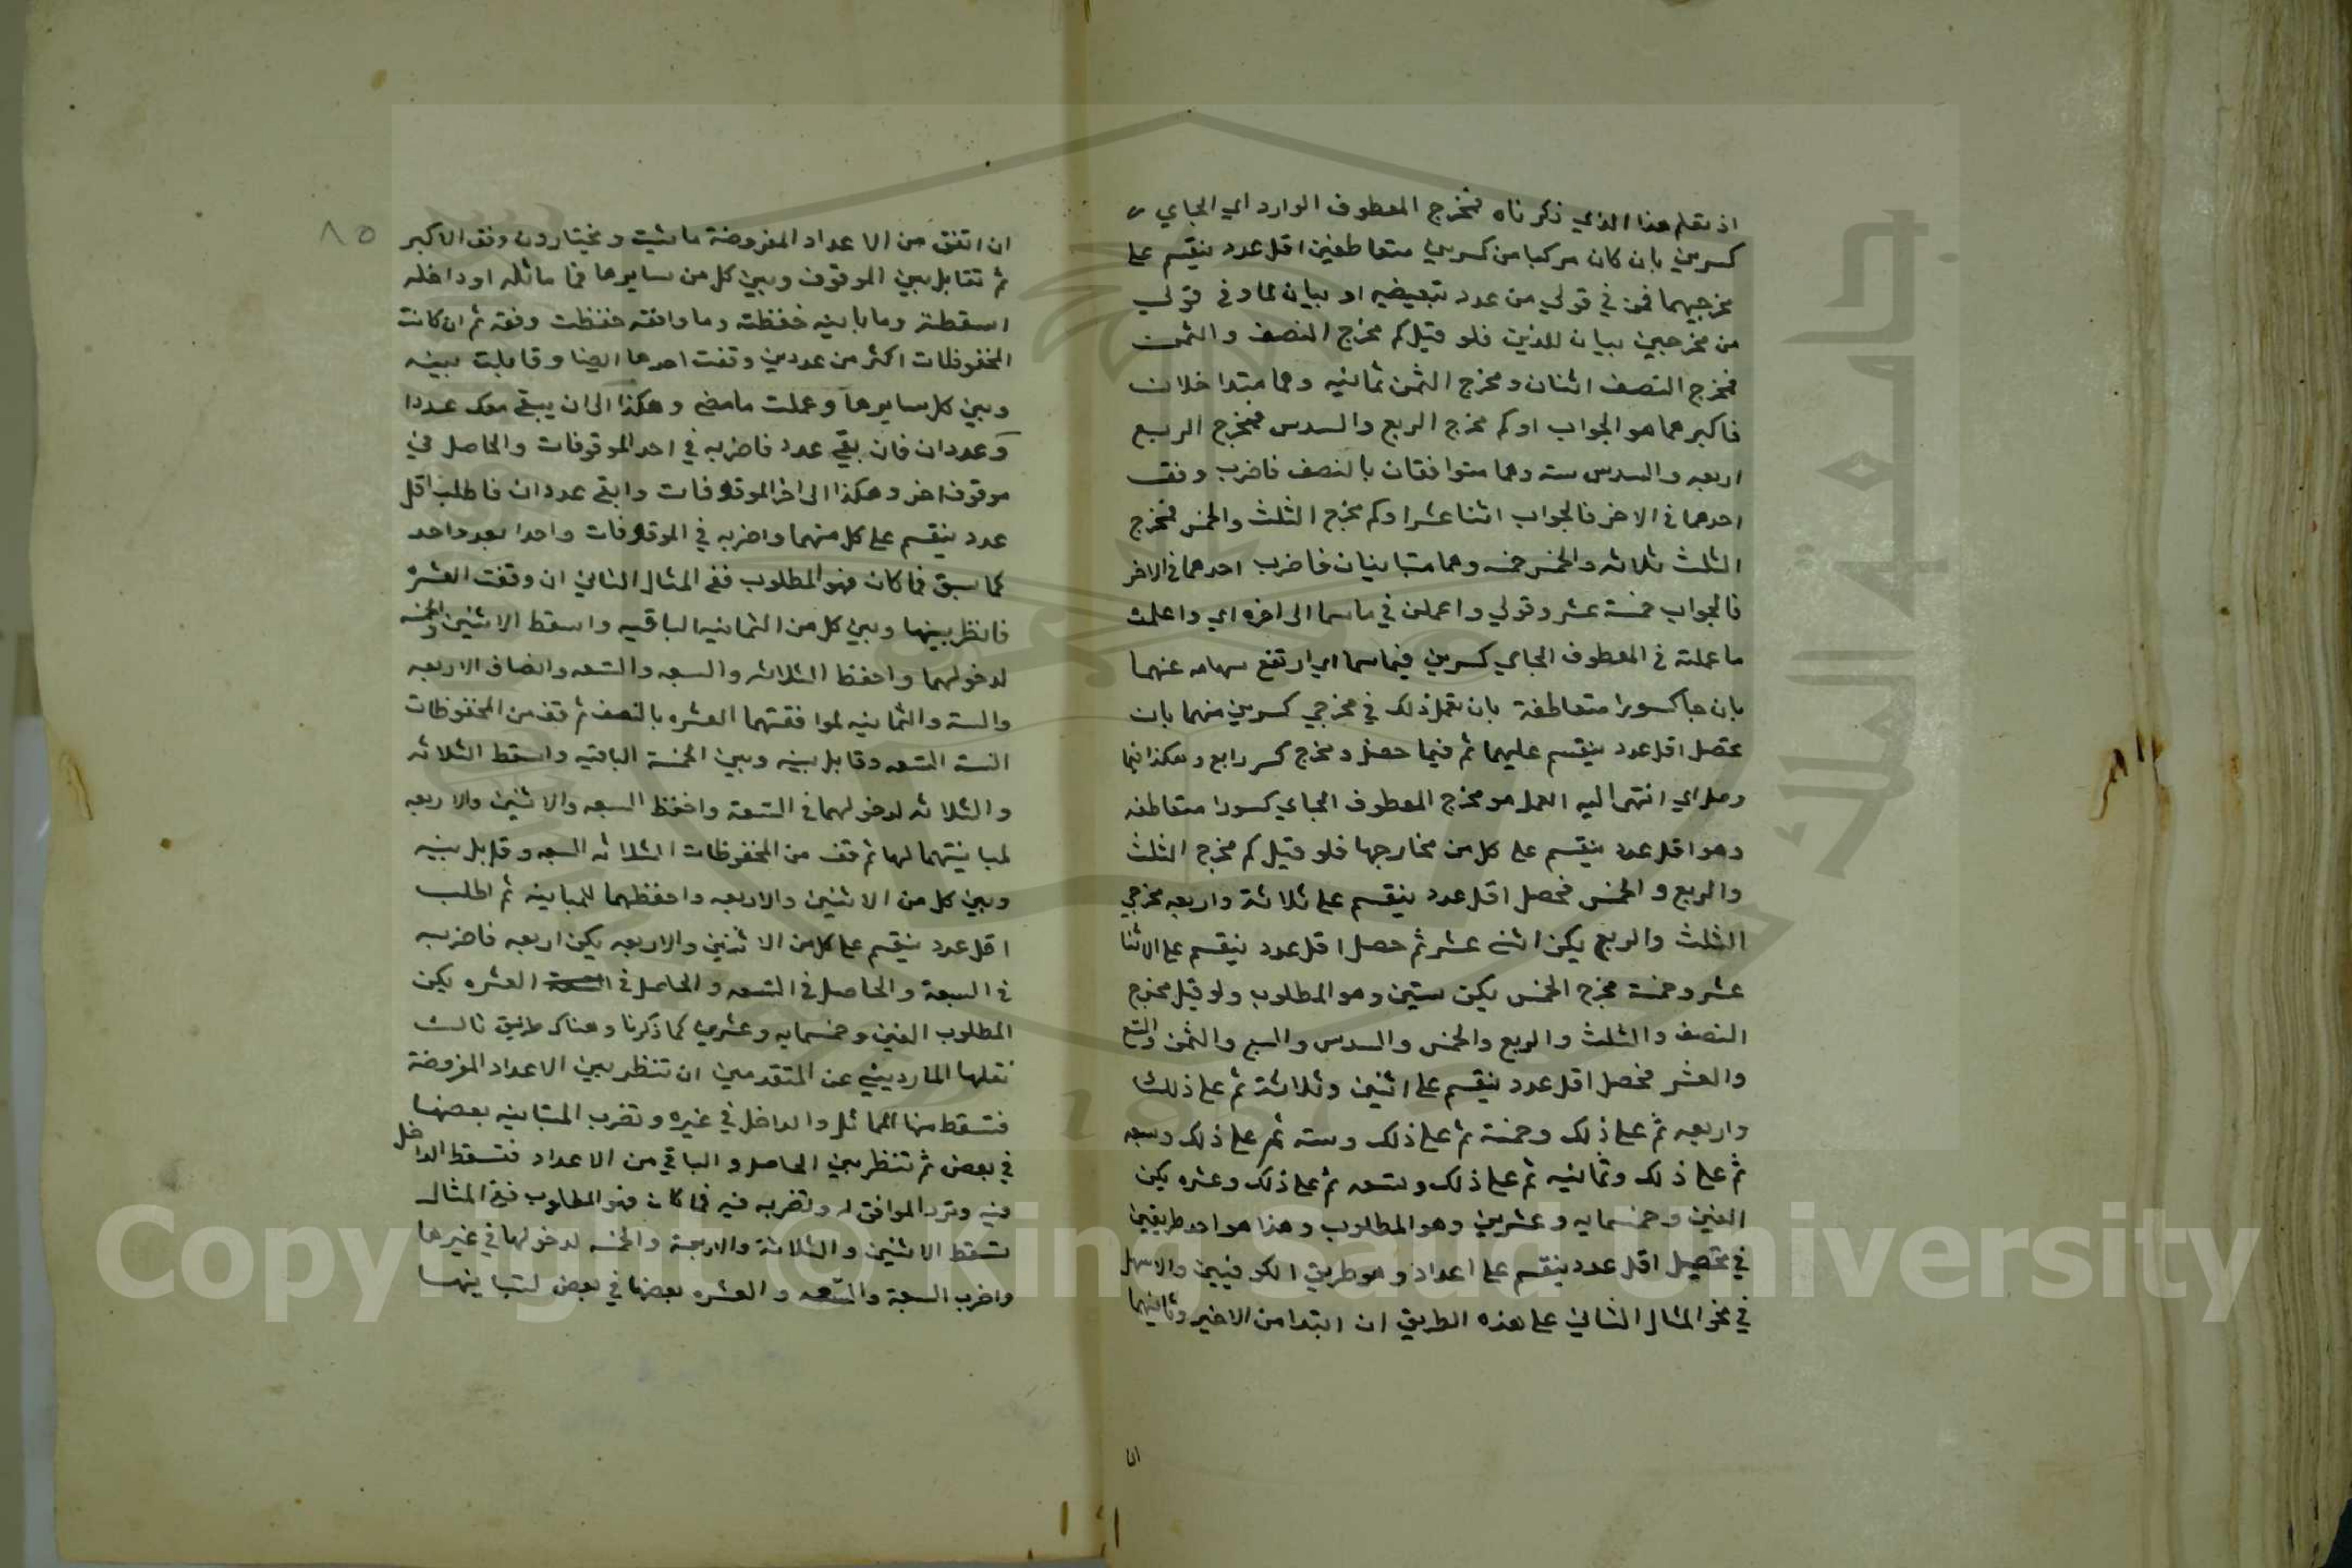 اذ تقلم هذا الذي ذكرناه فمخرج المعطوف الوارد اي الجاي
كسرين بان كان مركبا من كسرين متعاطفين اقل عدد ينقسم على
مخرجيهما فمن في قولي من عدد تبعيضيه او بيان لما وفي قولي
من مخرجين بيان للذين فلو قيل كم مخرج النصف والثمن
فمخرج النصف اثنان ومخرج الثمن ثمانيه وهما متداخلان
فاكبرهما هو الجواب او كم مخرج الربع والسدس فمخرج الربع
اربعه والسدس سته وهما متوافقان بالنصف فاضرب وفق
احدهما في الاخر فالجواب اثنا عشر او كم مخرج الثلث والخمس فمخرج
الثلث ثلاثه والخمس خمسه وهما متباينان فاضرب احدهما في الاخر
فالجواب خمسة عشر وقولي واعملن في ما سما الى اخره اي واعملن
ما عملته في المعطوف الجاي كسرين فيما سما اي ارتفع سهامه عنهما
بان جا كسورا متعاطفة بان تعمل ذلك في مخرجي كسرين منهما بان
تحصل اقل عدد ينقسم عليهما ثم فيما حصل ومخرج كسر رابع وهكذا فما
وصل اي انتهى اليه العمل هو مخرج المعطوف الجاي كسورا متعاطفه
وهو اقل عدد ينقسم على كل من مخارجها فلو قيل كم مخرج الثلث
والربع والخمس فحصل اقل عدد ينقسم على ثلاثة واربعه مخرجي
الثلث والربع يكن اثنى عشر ثم حصل اقل عدد ينقسم على الاثنا
عشر وخمسة مخرج الخمس يكن ستين وهو المطلوب ولو قيل مخرج
النصف والثلث والربع والخمس والسدس والسبع والثمن والتسع
والعشر فحصل اقل عدد ينقسم على اثنين وثلاثة ثم على ذلك
واربعه ثم على ذلك وخمسة ثم على ذلك وسته ثم على ذلك وسبعه
ثم على ذلك وثمانيه ثم على ذلك وتسعه ثم على ذلك وعشره يكن
الفين وخمسمايه وعشرين وهو المطلوب وهذا هو احد طريقين
في تحصيل اقل عدد ينقسم على اعداد وهو طريق الكوفيين والاسهل
في نحو المثال الثاني على هذه الطريق ان ابتدا من الاخير وثانيهما
ان
٨٥
ان اتفق من الاعداد المفروضة ما شيت ويختارون وفق الاكبر
ثم تقابل بين الموقوف وبين كل من سايرها فما ماثله او داخله
اسقطته وما باينه حفظته وما وافقه حفظت وفقه ثم ان كانت
المحفوظات اكثر من عددين وقفت احدها ايضا وقابلت بينه
وبين كل سايرها وعملت ما مضى وهكذا الى ان يبقى معك عددا
وعددان فان بقي عدد فاضربه في احد الموقوفات والحاصل في
موقوف اخر وهكذا الى اخر الموقوفات وابقى عددان فاطلب اقل
عدد ينقسم على كل منهما واضربه في الموقوفات واحدا بعد واحد
كما سبق فما كان فهو المطلوب ففي المثال الثاني ان وقفت العشره
فانظر بينها وبين كل من الثمانيه الباقيه واسقط الاثنين والخمسه
لدخولهما واحفظ الثلاثه والسبعه والتسعه وانصاف الاربعه
والسته والثمانيه لموافقتهما العشره بالنصف ثم قف من المحفوظات
الستة التسعه وقابل بينه وبين الخمسة الباقيه واسقط الثلاثه
والثلاثه لدخولهما في التسعة واحفظ السبعه والاثنين والاربعه
لمباينتهما لها ثم قف من المحفوظات الثلاثه السبعه وقابل بينه
وبين كل من الاثنين والاربعه واحفظهما للمباينه ثم اطلب
اقل عدد ينقسم على كل من الاثنين والاربعه يكن اربعه فاضربه
في السبعة والحاصل في التسعه والحاصل في العشره يكن
المطلوب الفين وخمسمايه وعشرين كما ذكرنا وهناك طريق ثالث
نقلها المارديني عن المتقدمين ان تنظر بين الاعداد المفروضة
فتسقط منها المماثل والداخل في غيره وتضرب المتباينه بعضها
في بعض ثم تنظر بين الحاصل والباقي من الاعداد فتسقط الداخل
فيه وترد الموافق له وتضربه فيه فما كان فهو المطلوب ففي المثال
تسقط الاثنين والثلاثة والاربعة والخمسه لدخولها في غيرها
واضرب السبعة والتسعه والعشره بعضها في بعض لتباينها
Copyright © King Saud University